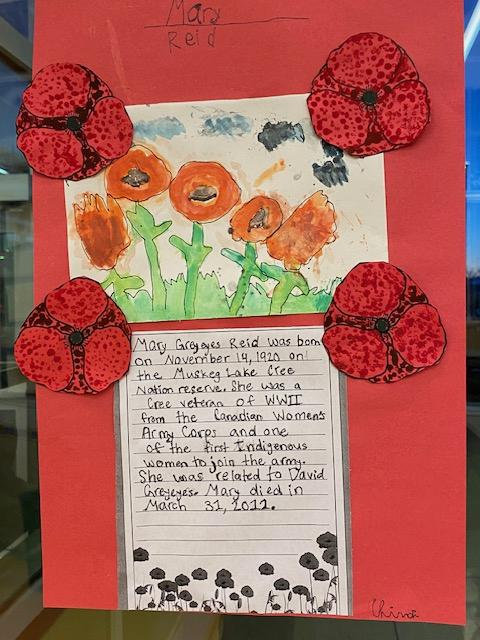 Mary
Reid
Mary Greyeyes Reid was born
on November 14, 1920 on
the Muskeg Lake Cree
Nation reserve. She was a
Cree veteran of WWII
from the Canadian Women's
Army Corps and one
of the first Indigenous
women to join the army.
She was related to David
Greyeyes. Mary died in
March 31, 2011.